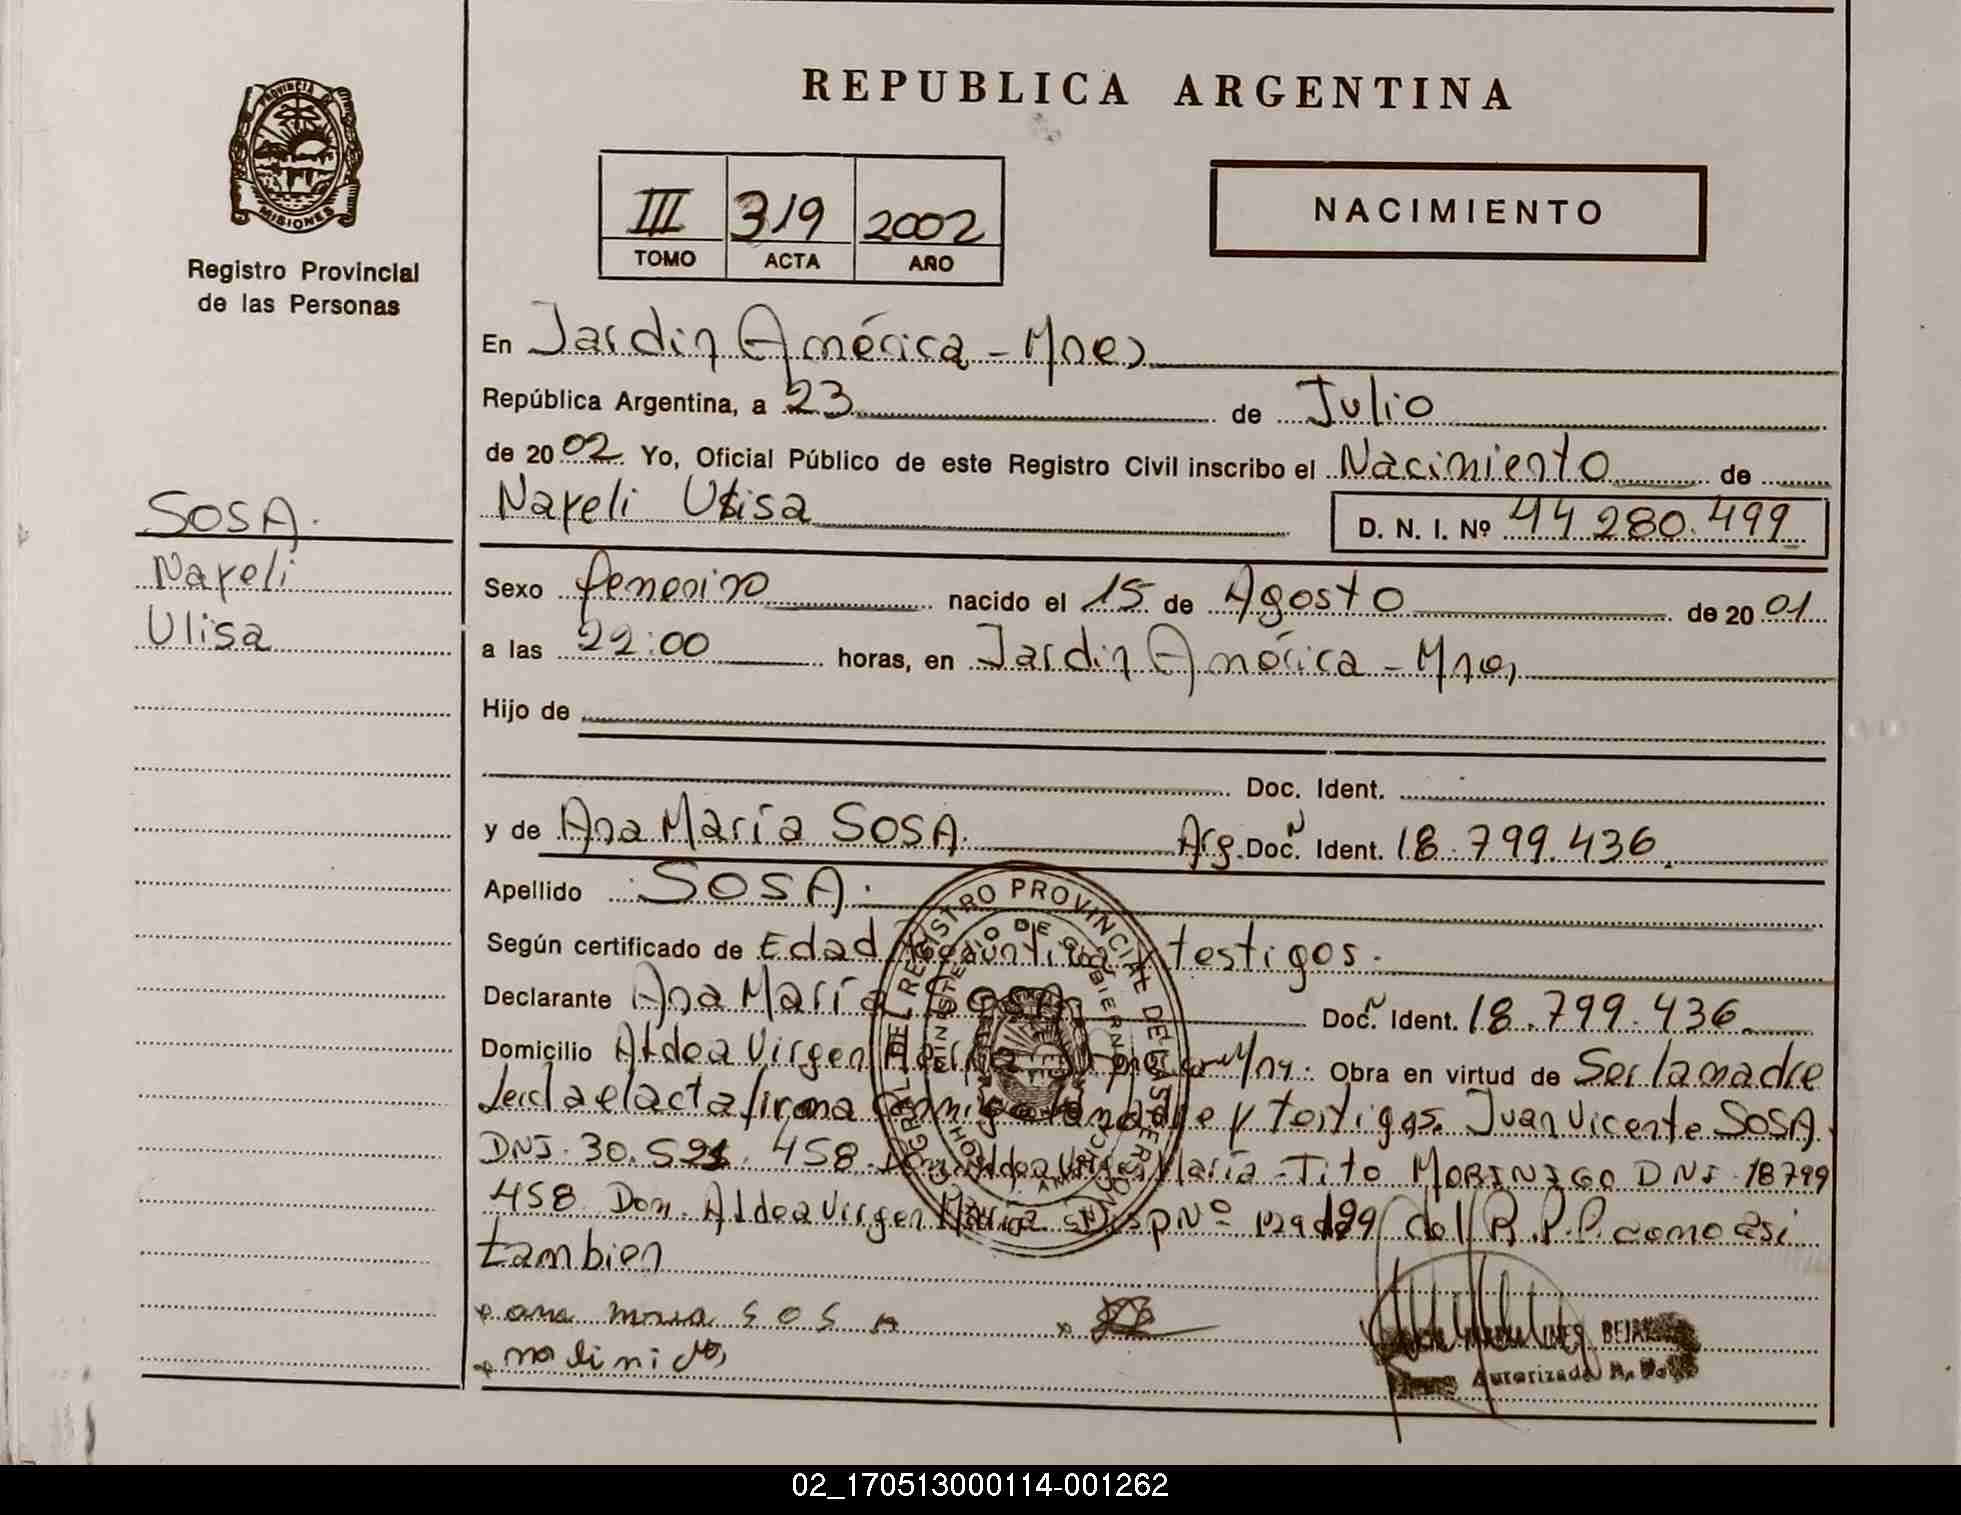 PROVINCIA DE
MISIONES
Registro Provincial
de las Personas
SOSA.
Nayeli
Ulisa
REPUBLICA ARGENTINA
III 319 2002
TOMO ACTA AÑO
NACIMIENTO
En Jardin América - Mnes
República Argentina, a 23 de Julio
de 2002 Yo, Oficial Público de este Registro Civil inscribo el Nacimiento de
Nayeli Ulisa D. N. I. Nº 44 280.499
Sexo femenino nacido el 15 de Agosto de 2001
a las 22:00 horas, en Jardin América - Mnes
Hijo de
Doc. Ident.
y de Ana María SOSA. Arg. Doc. N Ident. 18.799.436
Apellido SOSA.
Según certificado de Edad testigos.
Declarante Ana María SOSA Doc. N Ident. 18.799.436
Domicilio Aldea Virgen María Obra en virtud de Ser la madre
Leida el acta firma conmigo la madre y testigos. Juan Vicente SOSA.
DNI. 30. 458. Dom. Aldea Virgen María - Tito MORINIGO DNI 18799
458 Dom. Aldea Virgen María Disp Nº del R.P.P. como asi
tambien
ana SOSA
Autorizada
REGISTRO PROVINCIAL DE LAS PERSONAS
MINISTERIO DE GOBIERNO
02_170513000114-001262